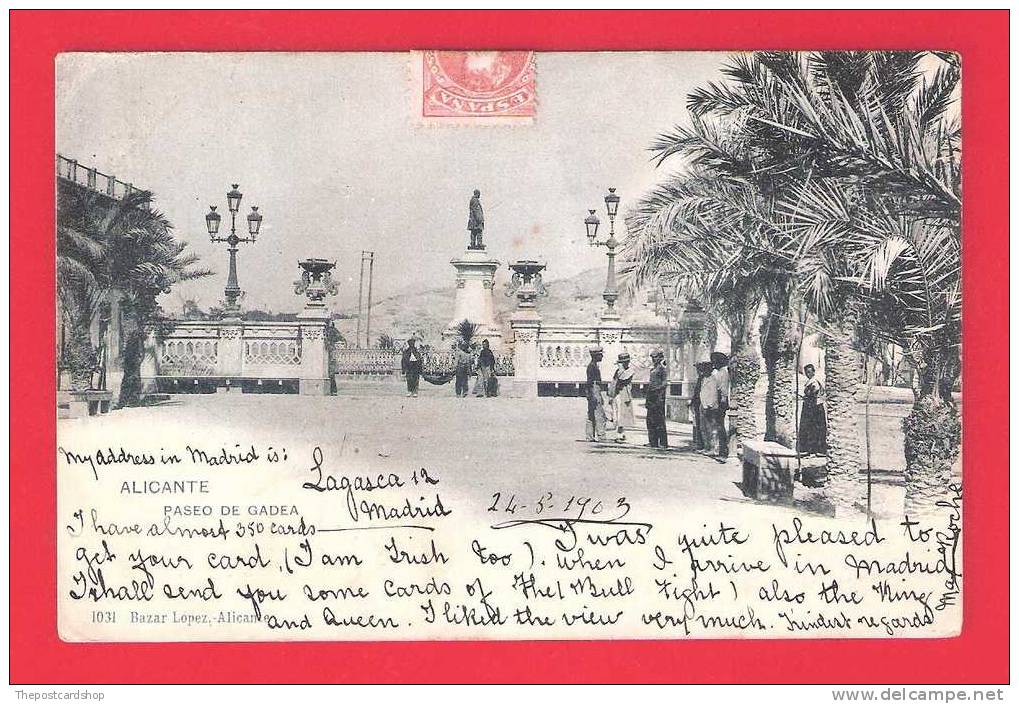 ESPAÑA
My address in Madrid is:
Lagasca 12
Madrid
24-5-1903
ALICANTE
PASEO DE GADEA
I have almost 350 cards
I was quite pleased to
get your card, (I am Irish too). When I arrive in Madrid
I shall send you some cards of the (Bull Fight) also the King
and Queen. I liked the view very much. Kindest regards
Roche
1031 Bazar López,-Alicante
Thepostcardshop
www.delcampe.net